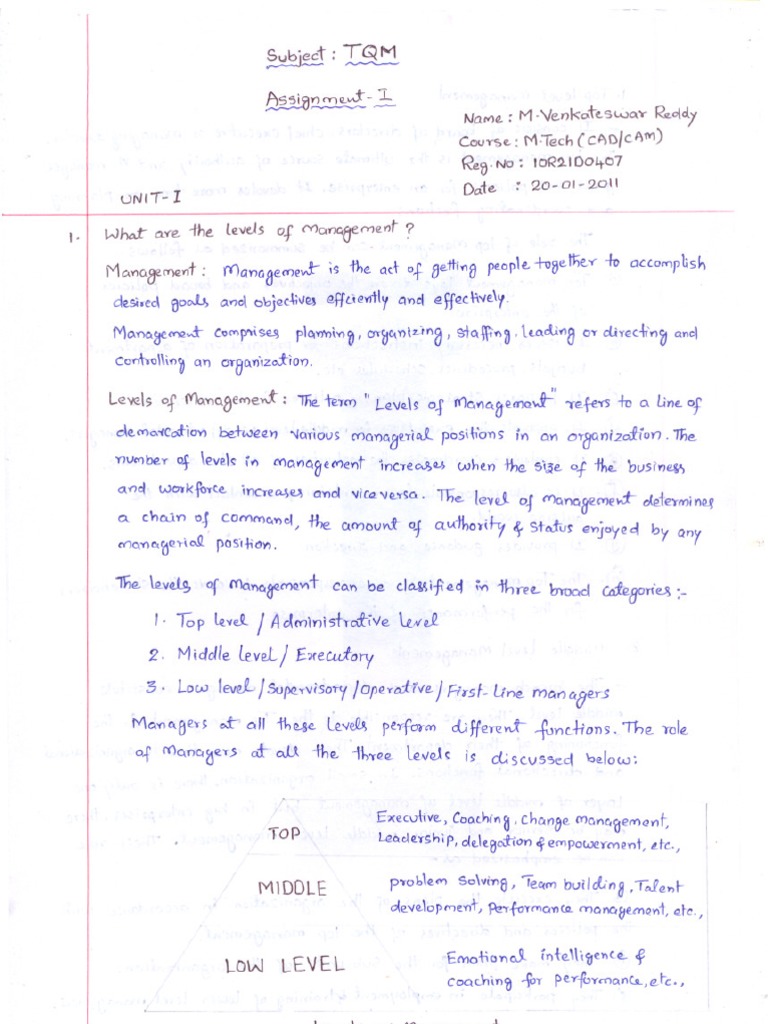 Subject : TQM
Assignment - I
Name : M. Venkateswar Reddy
Course : M.Tech (CAD/CAM)
Reg. No : 10R21D0407
Date : 20-01-2011
UNIT-I
1. What are the levels of Management ?
Management : Management is the act of getting people together to accomplish
desired goals and objectives efficiently and effectively.
Management comprises planning, organizing, staffing. leading or directing and
controlling an organization.
Levels of Management : The term "Levels of Management" refers to a line of
demarcation between various managerial positions in an organization. The
number of levels in management increases when the size of the business
and workforce increases and vice versa. The level of management determines
a chain of command, the amount of authority & status enjoyed by any
managerial position.
The levels of Management can be classified in three broad categories :-
1. Top level / Administrative Level
2. Middle level / Executory
3. Low level / Supervisory / Operative / First-Line managers
Managers at all these levels perform different functions. The role
of Managers at all the three levels is discussed below:
TOP
Executive, Coaching. Change management,
Leadership, delegation & empowerment, etc.,
MIDDLE
problem Solving, Team building, Talent
development, Performance management, etc.,
LOW LEVEL
Emotional intelligence &
coaching for performance, etc.,